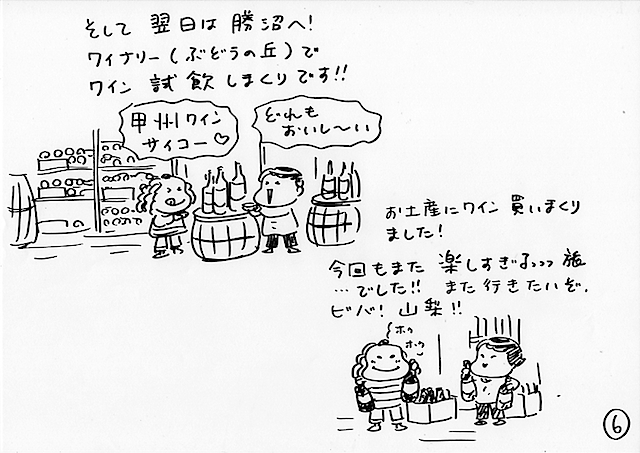 そして 翌日は 勝沼へ!
ワイナリー(ぶどうの丘)で
ワイン 試飲 しまくりです!!
甲州ワイン
サイコー♡
どれも
おいし〜い
お土産にワイン 買いまくり
ました!
今回もまた 楽しすぎるっっっ 旅
…でした!! また行きたいぞ.
ビバ! 山梨!!
ホウ
ホウ
6